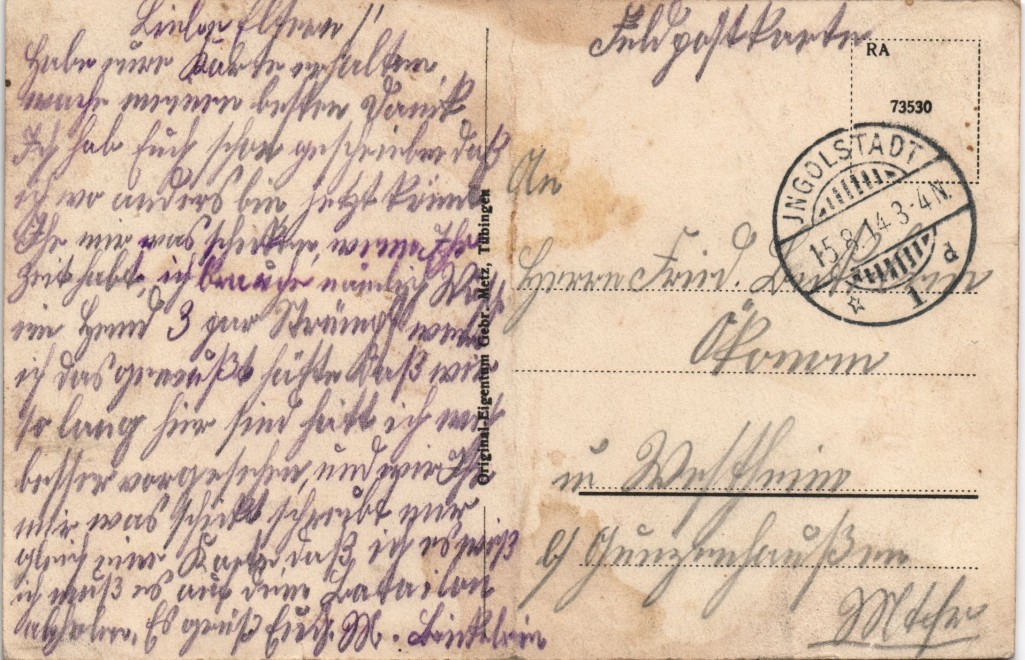 Liebe Eltern!
Habe eure Karte erhalten,
meinen besten Dank
Ich hab Euch schon geschrieben daß
ich wo anders bin jetzt könnt
Ihr mir was schicken, wenn Ihr
Zeit habt, ich brauche nämlich
ein Hemd 3 par Strümpf wenn
ich das gewußt hätte daß wir
so lang hier sind hätt ich mich
besser vorgesehen, und wenn Ihr
mir was schickt schreibt mir
gleich eine Karte daß ich es weiß
ich muß es auf dem Batailon
abholen. Es grüßt Euch M.
Feldpostkarte
RA
73530
INGOLSTADT
15.8.14.3-4N.
d
1
An
Herrn Fried.
Ökonom
in Westheim
b/ Gunzenhaußen
Original-Eigentum Gebr. Metz, Tübingen